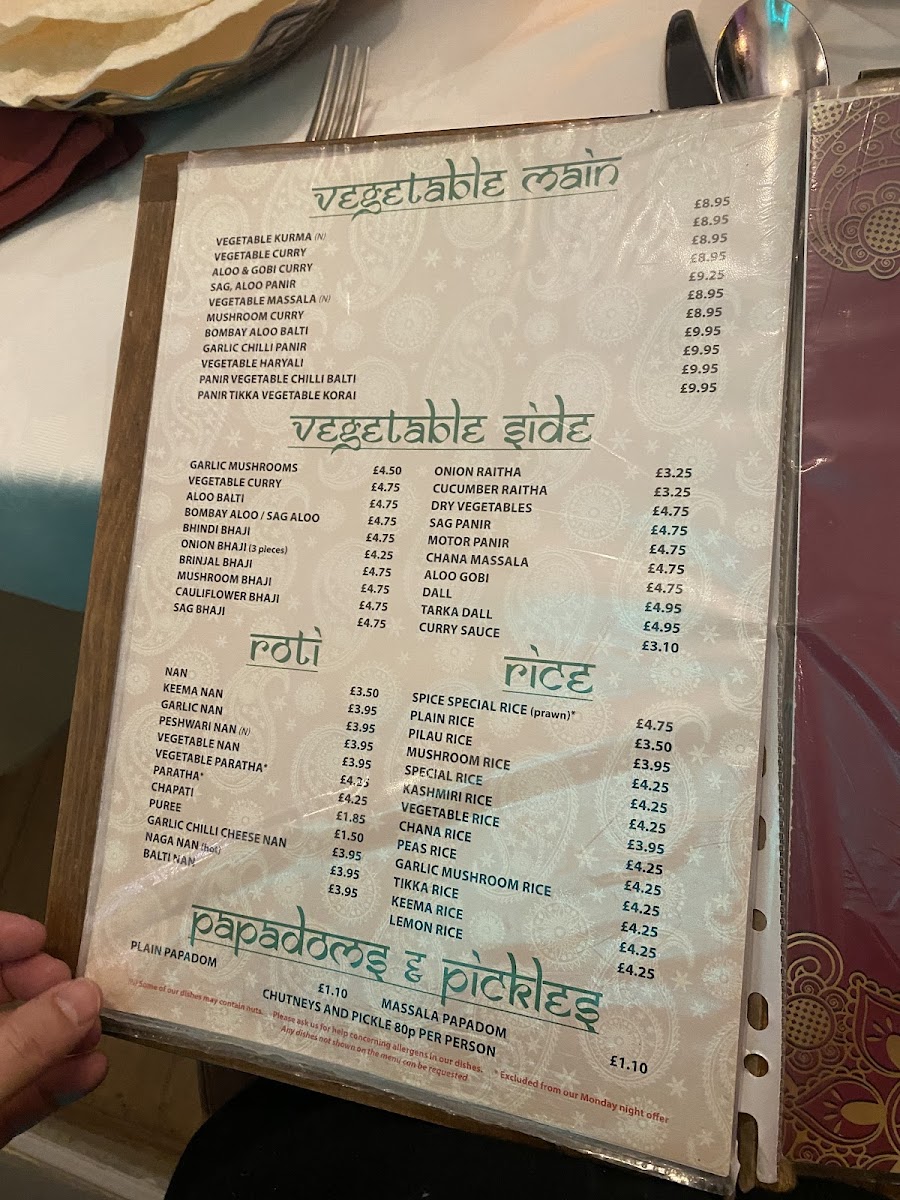 VEGETABLE MAIN
VEGETABLE KURMA (N) £8.95
VEGETABLE CURRY £8.95
ALOO & GOBI CURRY £8.95
SAG, ALOO PANIR £8.95
VEGETABLE MASSALA (N) £9.25
MUSHROOM CURRY £8.95
BOMBAY ALOO BALTI £8.95
GARLIC CHILLI PANIR £9.95
VEGETABLE HARYALI £9.95
PANIR VEGETABLE CHILLI BALTI £9.95
PANIR TIKKA VEGETABLE KORAI £9.95
VEGETABLE SIDE
GARLIC MUSHROOMS £4.50
VEGETABLE CURRY £4.75
ALOO BALTI £4.75
BOMBAY ALOO / SAG ALOO £4.75
BHINDI BHAJI £4.75
ONION BHAJI (3 pieces) £4.25
BRINJAL BHAJI £4.75
MUSHROOM BHAJI £4.75
CAULIFLOWER BHAJI £4.75
SAG BHAJI £4.75
ONION RAITHA £3.25
CUCUMBER RAITHA £3.25
DRY VEGETABLES £4.75
SAG PANIR £4.75
MOTOR PANIR £4.75
CHANA MASSALA £4.75
ALOO GOBI £4.75
DALL £4.95
TARKA DALL £4.95
CURRY SAUCE £3.10
ROTI
NAN £3.50
KEEMA NAN £3.95
GARLIC NAN £3.95
PESHWARI NAN (N) £3.95
VEGETABLE NAN £3.95
VEGETABLE PARATHA* £4.25
PARATHA* £4.25
CHAPATI £1.85
PUREE £1.50
GARLIC CHILLI CHEESE NAN £3.95
NAGA NAN (hot) £3.95
BALTI NAN £3.95
RICE
SPICE SPECIAL RICE (prawn)* £4.75
PLAIN RICE £3.50
PILAU RICE £3.95
MUSHROOM RICE £4.25
SPECIAL RICE £4.25
KASHMIRI RICE £4.25
VEGETABLE RICE £3.95
CHANA RICE £4.25
PEAS RICE £4.25
GARLIC MUSHROOM RICE £4.25
TIKKA RICE £4.25
KEEMA RICE £4.25
LEMON RICE £4.25
PAPADOMS & PICKLES
PLAIN PAPADOM £1.10 MASSALA PAPADOM £1.10
CHUTNEYS AND PICKLE 80p PER PERSON
(N) Some of our dishes may contain nuts. Please ask us for help concerning allergens in our dishes. * Excluded from our Monday night offer
Any dishes not shown on the menu can be requested